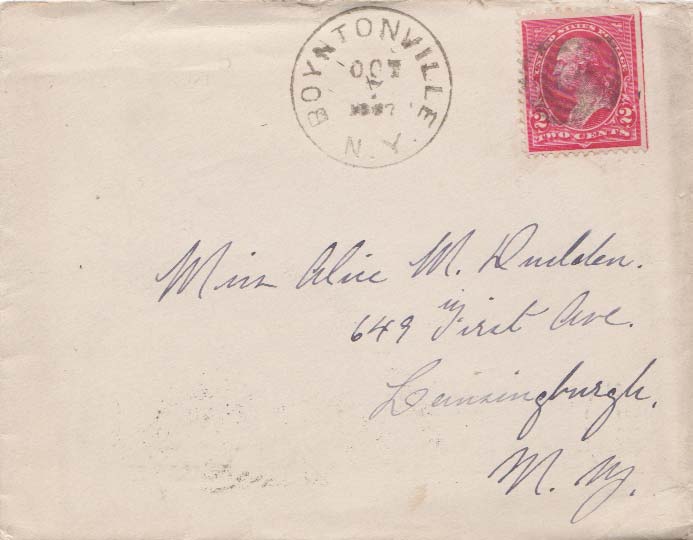 BOYNTONVILLE
OCT
N.Y.
UNITED STATES POSTAGE
2 2
TWO CENTS
Miss Alice M. Dudden.
649 First Ave.
Lansingburgh.
N. Y.